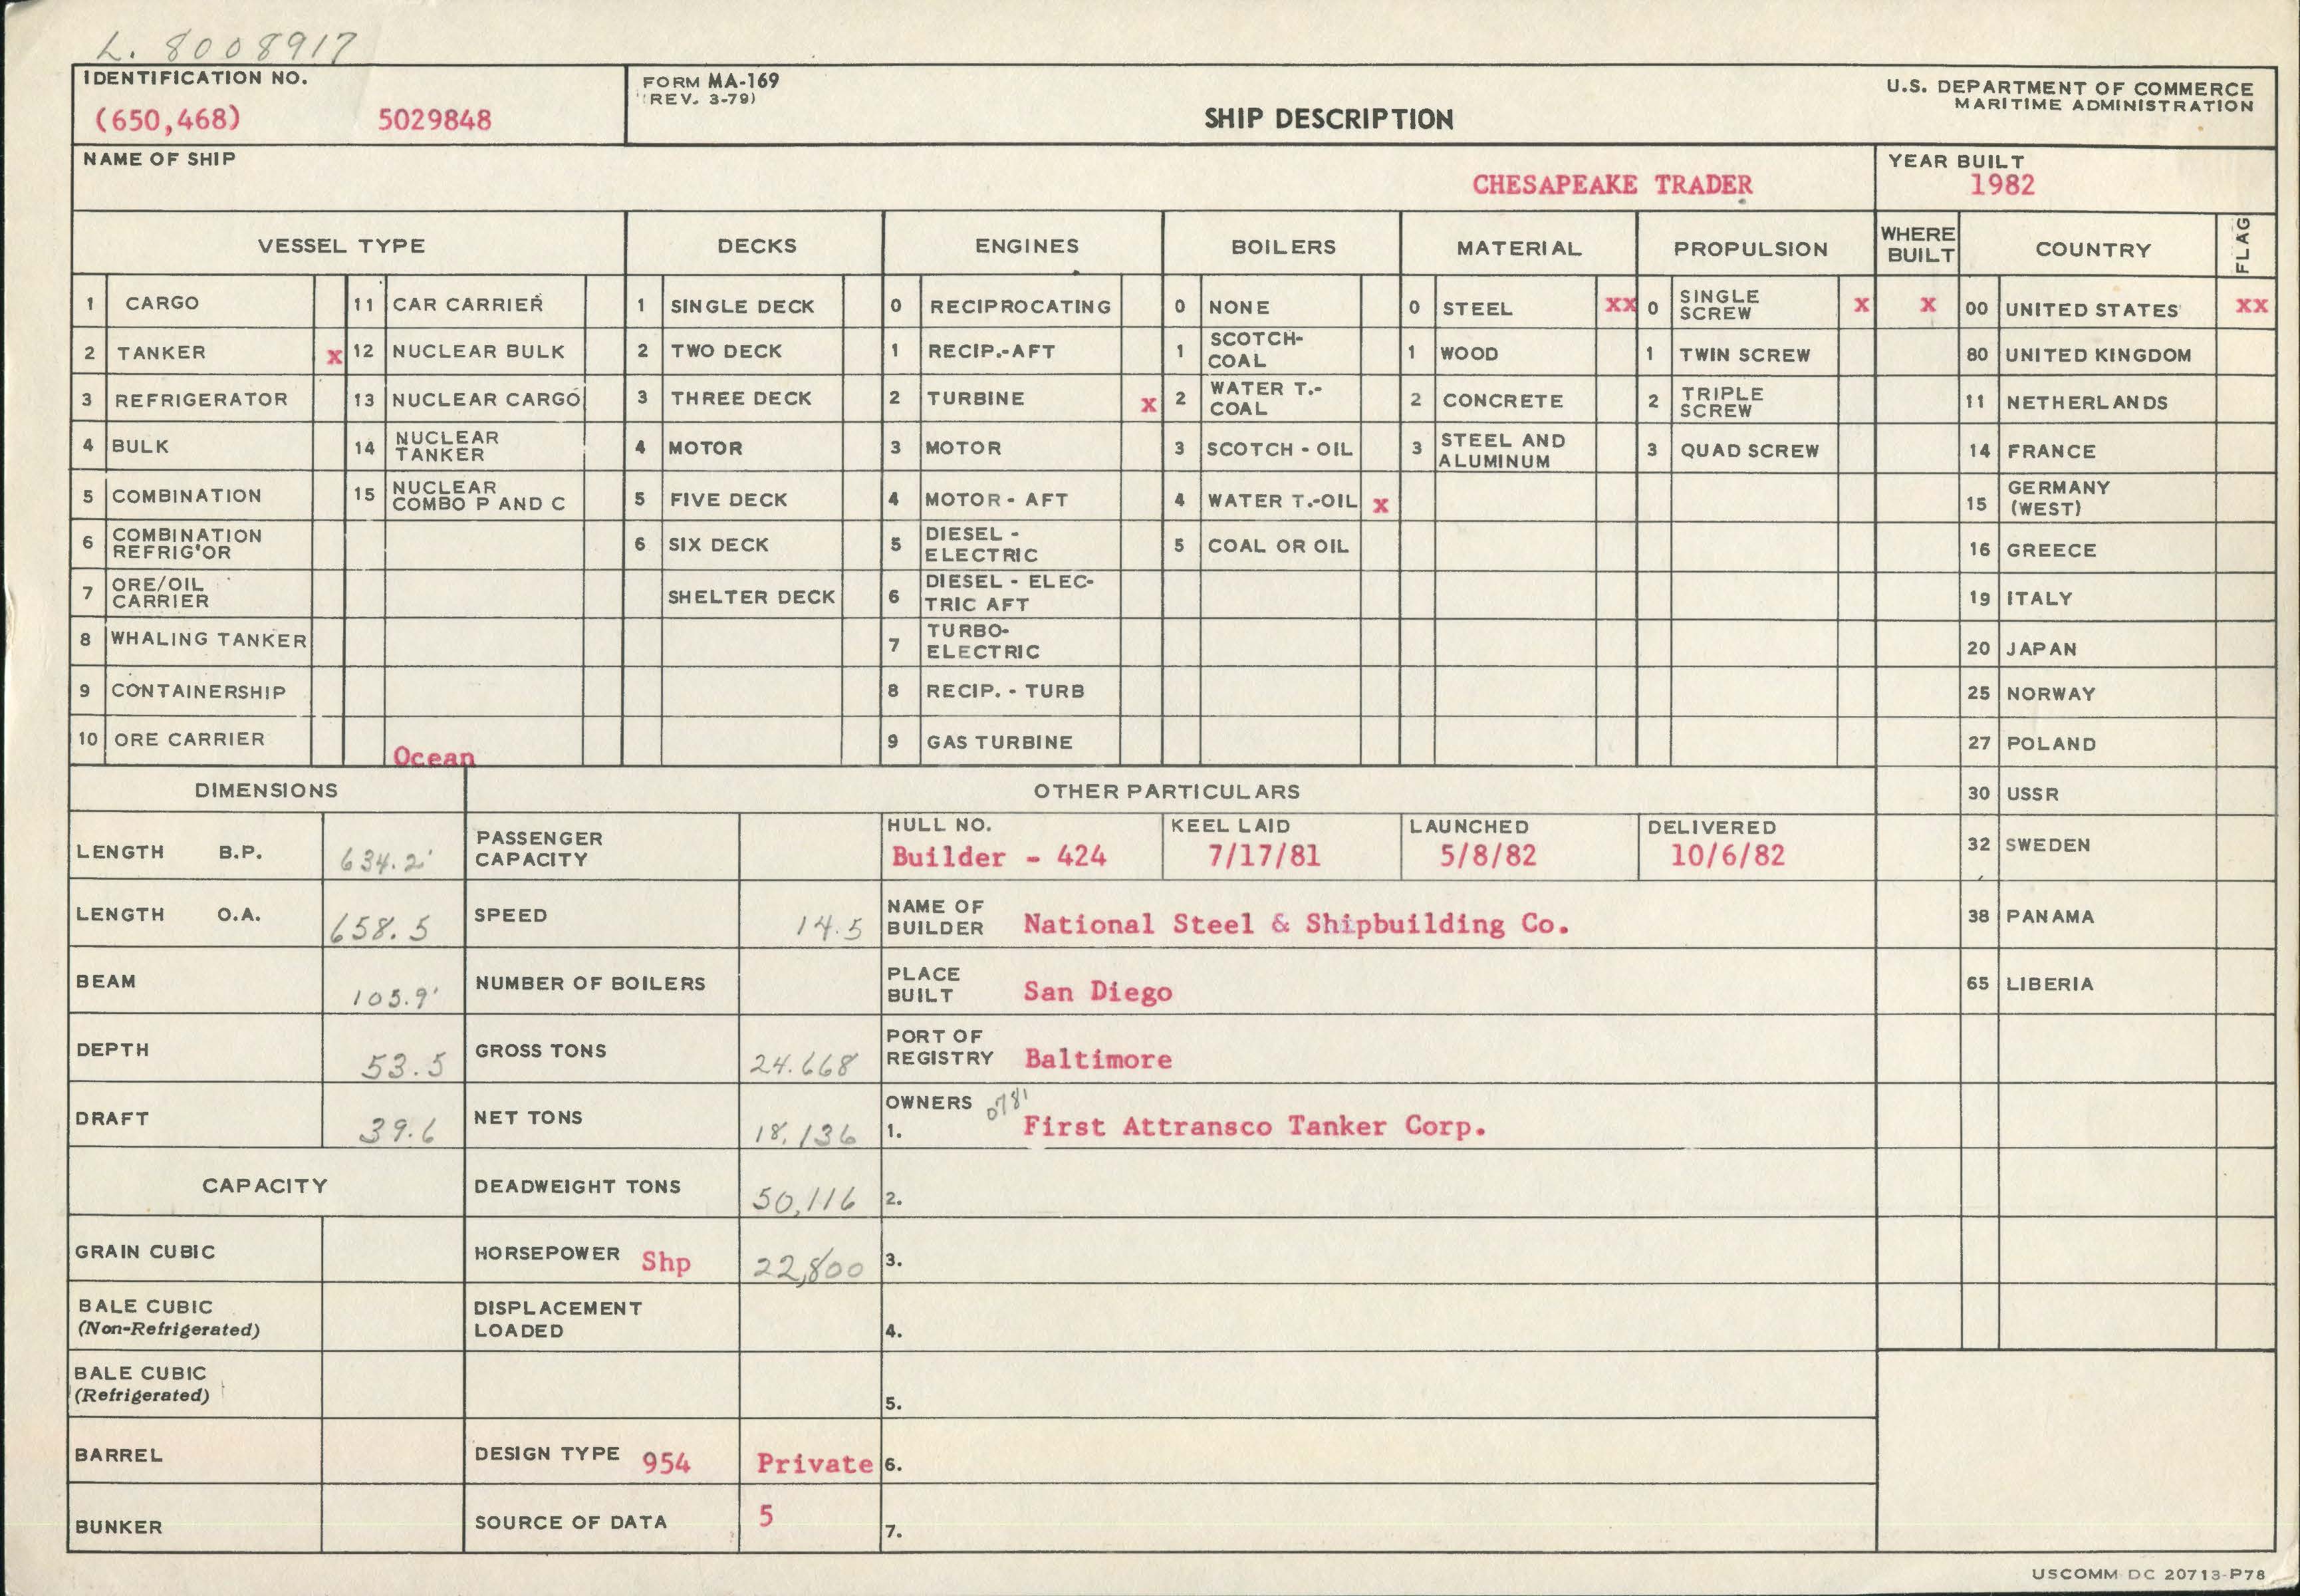 L. 8008917
IDENTIFICATION NO.
(650,468) 5029848
FORM MA-169
(REV. 3-79)
SHIP DESCRIPTION
U.S. DEPARTMENT OF COMMERCE
MARITIME ADMINISTRATION
NAME OF SHIP
CHESAPEAKE TRADER
YEAR BUILT
1982
VESSEL TYPE DECKS ENGINES BOILERS MATERIAL PROPULSION WHERE BUILT COUNTRY FLAG
1 CARGO 11 CAR CARRIER 1 SINGLE DECK 0 RECIPROCATING 0 NONE 0 STEEL XX 0 SINGLE SCREW X X 00 UNITED STATES XX
2 TANKER X 12 NUCLEAR BULK 2 TWO DECK 1 RECIP.-AFT 1 SCOTCH-COAL 1 WOOD 1 TWIN SCREW 80 UNITED KINGDOM
3 REFRIGERATOR 13 NUCLEAR CARGO 3 THREE DECK 2 TURBINE X 2 WATER T.-COAL 2 CONCRETE 2 TRIPLE SCREW 11 NETHERLANDS
4 BULK 14 NUCLEAR TANKER 4 MOTOR 3 MOTOR 3 SCOTCH - OIL 3 STEEL AND ALUMINUM 3 QUAD SCREW 14 FRANCE
5 COMBINATION 15 NUCLEAR COMBO P AND C 5 FIVE DECK 4 MOTOR - AFT 4 WATER T.-OIL X 15 GERMANY (WEST)
6 COMBINATION REFRIG'OR 6 SIX DECK 5 DIESEL - ELECTRIC 5 COAL OR OIL 16 GREECE
7 ORE/OIL CARRIER SHELTER DECK 6 DIESEL - ELEC-TRIC AFT 19 ITALY
8 WHALING TANKER 7 TURBO-ELECTRIC 20 JAPAN
9 CONTAINERSHIP 8 RECIP. - TURB 25 NORWAY
10 ORE CARRIER Ocean 9 GAS TURBINE 27 POLAND
DIMENSIONS OTHER PARTICULARS 30 USSR
LENGTH B.P. 634.2' PASSENGER CAPACITY HULL NO. Builder - 424 KEEL LAID 7/17/81 LAUNCHED 5/8/82 DELIVERED 10/6/82 32 SWEDEN
LENGTH O.A. 658.5 SPEED 14.5 NAME OF BUILDER National Steel & Shipbuilding Co. 38 PANAMA
BEAM 105.9' NUMBER OF BOILERS PLACE BUILT San Diego 65 LIBERIA
DEPTH 53.5 GROSS TONS 24.668 PORT OF REGISTRY Baltimore
DRAFT 39.6 NET TONS 18,136 OWNERS 0781 1. First Attransco Tanker Corp.
CAPACITY DEADWEIGHT TONS 50,116 2.
GRAIN CUBIC HORSEPOWER Shp 22,800 3.
BALE CUBIC (Non-Refrigerated) DISPLACEMENT LOADED 4.
BALE CUBIC (Refrigerated) 5.
BARREL DESIGN TYPE 954 Private 6.
BUNKER SOURCE OF DATA 5 7.
USCOMM DC 20713-P78